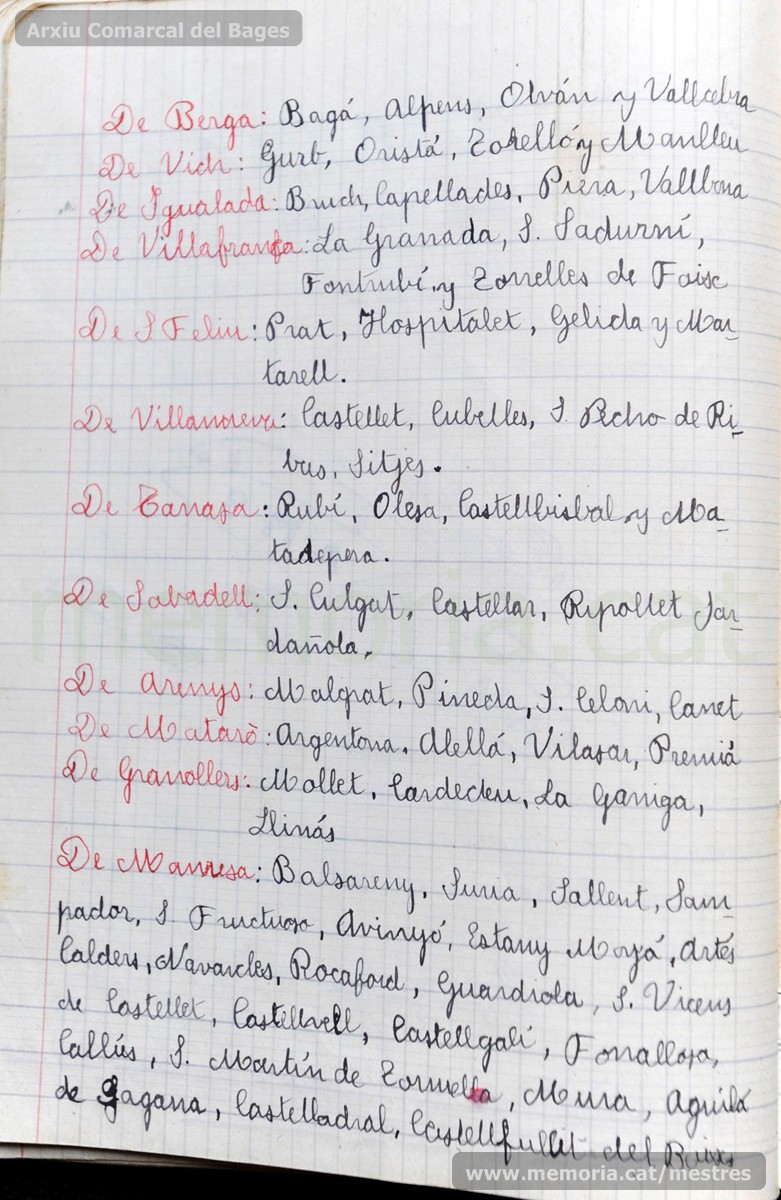 Arxiu Comarcal del Bages
De Berga: Bagá, Alpens, Olván y Vallcebra
De Vich: Gurb, Oristá, Torelló y Manlleu
De Igualada: Bruch, Capellades, Piera, Vallbona
De Villafranca: La Granada, S. Sadurní,
Fontrubí, y Torrelles de Foix
De S Feliu: Prat, Hospitalet, Gelida y Mar-
tarell.
De Villanueva: Castellet, Cubelles, S. Pedro de Ri-
bas, Sitjes.
De Tarrasa: Rubí, Olesa, Castellbisbal, y Ma-
tadepera.
De Sabadell: S. Culgat, Castellar, Ripollet Sar-
dañola,
De Arenys: Malgrat, Pineda, S. Celoni, Canet
De Mataró: Argentona, Alellá, Vilasar, Premiá
De Granollers: Mollet, Cardedeu, La Garriga,
Llinás
De Manresa: Balsareny, Suria, Sallent, Sam-
pador, S. Fructuoso, Avinyó, Estany Moyá, Artés
Calders, Navarcles, Rocaford, Guardiola, S. Vicens
de Castellet, Castellvell, Castellgalí, Fonollosa,
Callús, S. Martín de Torruella, Mura, Aguilá
de Sagarra, Castelladral, Castellfullit del Boix
www.memoria.cat/mestres
memoria.cat